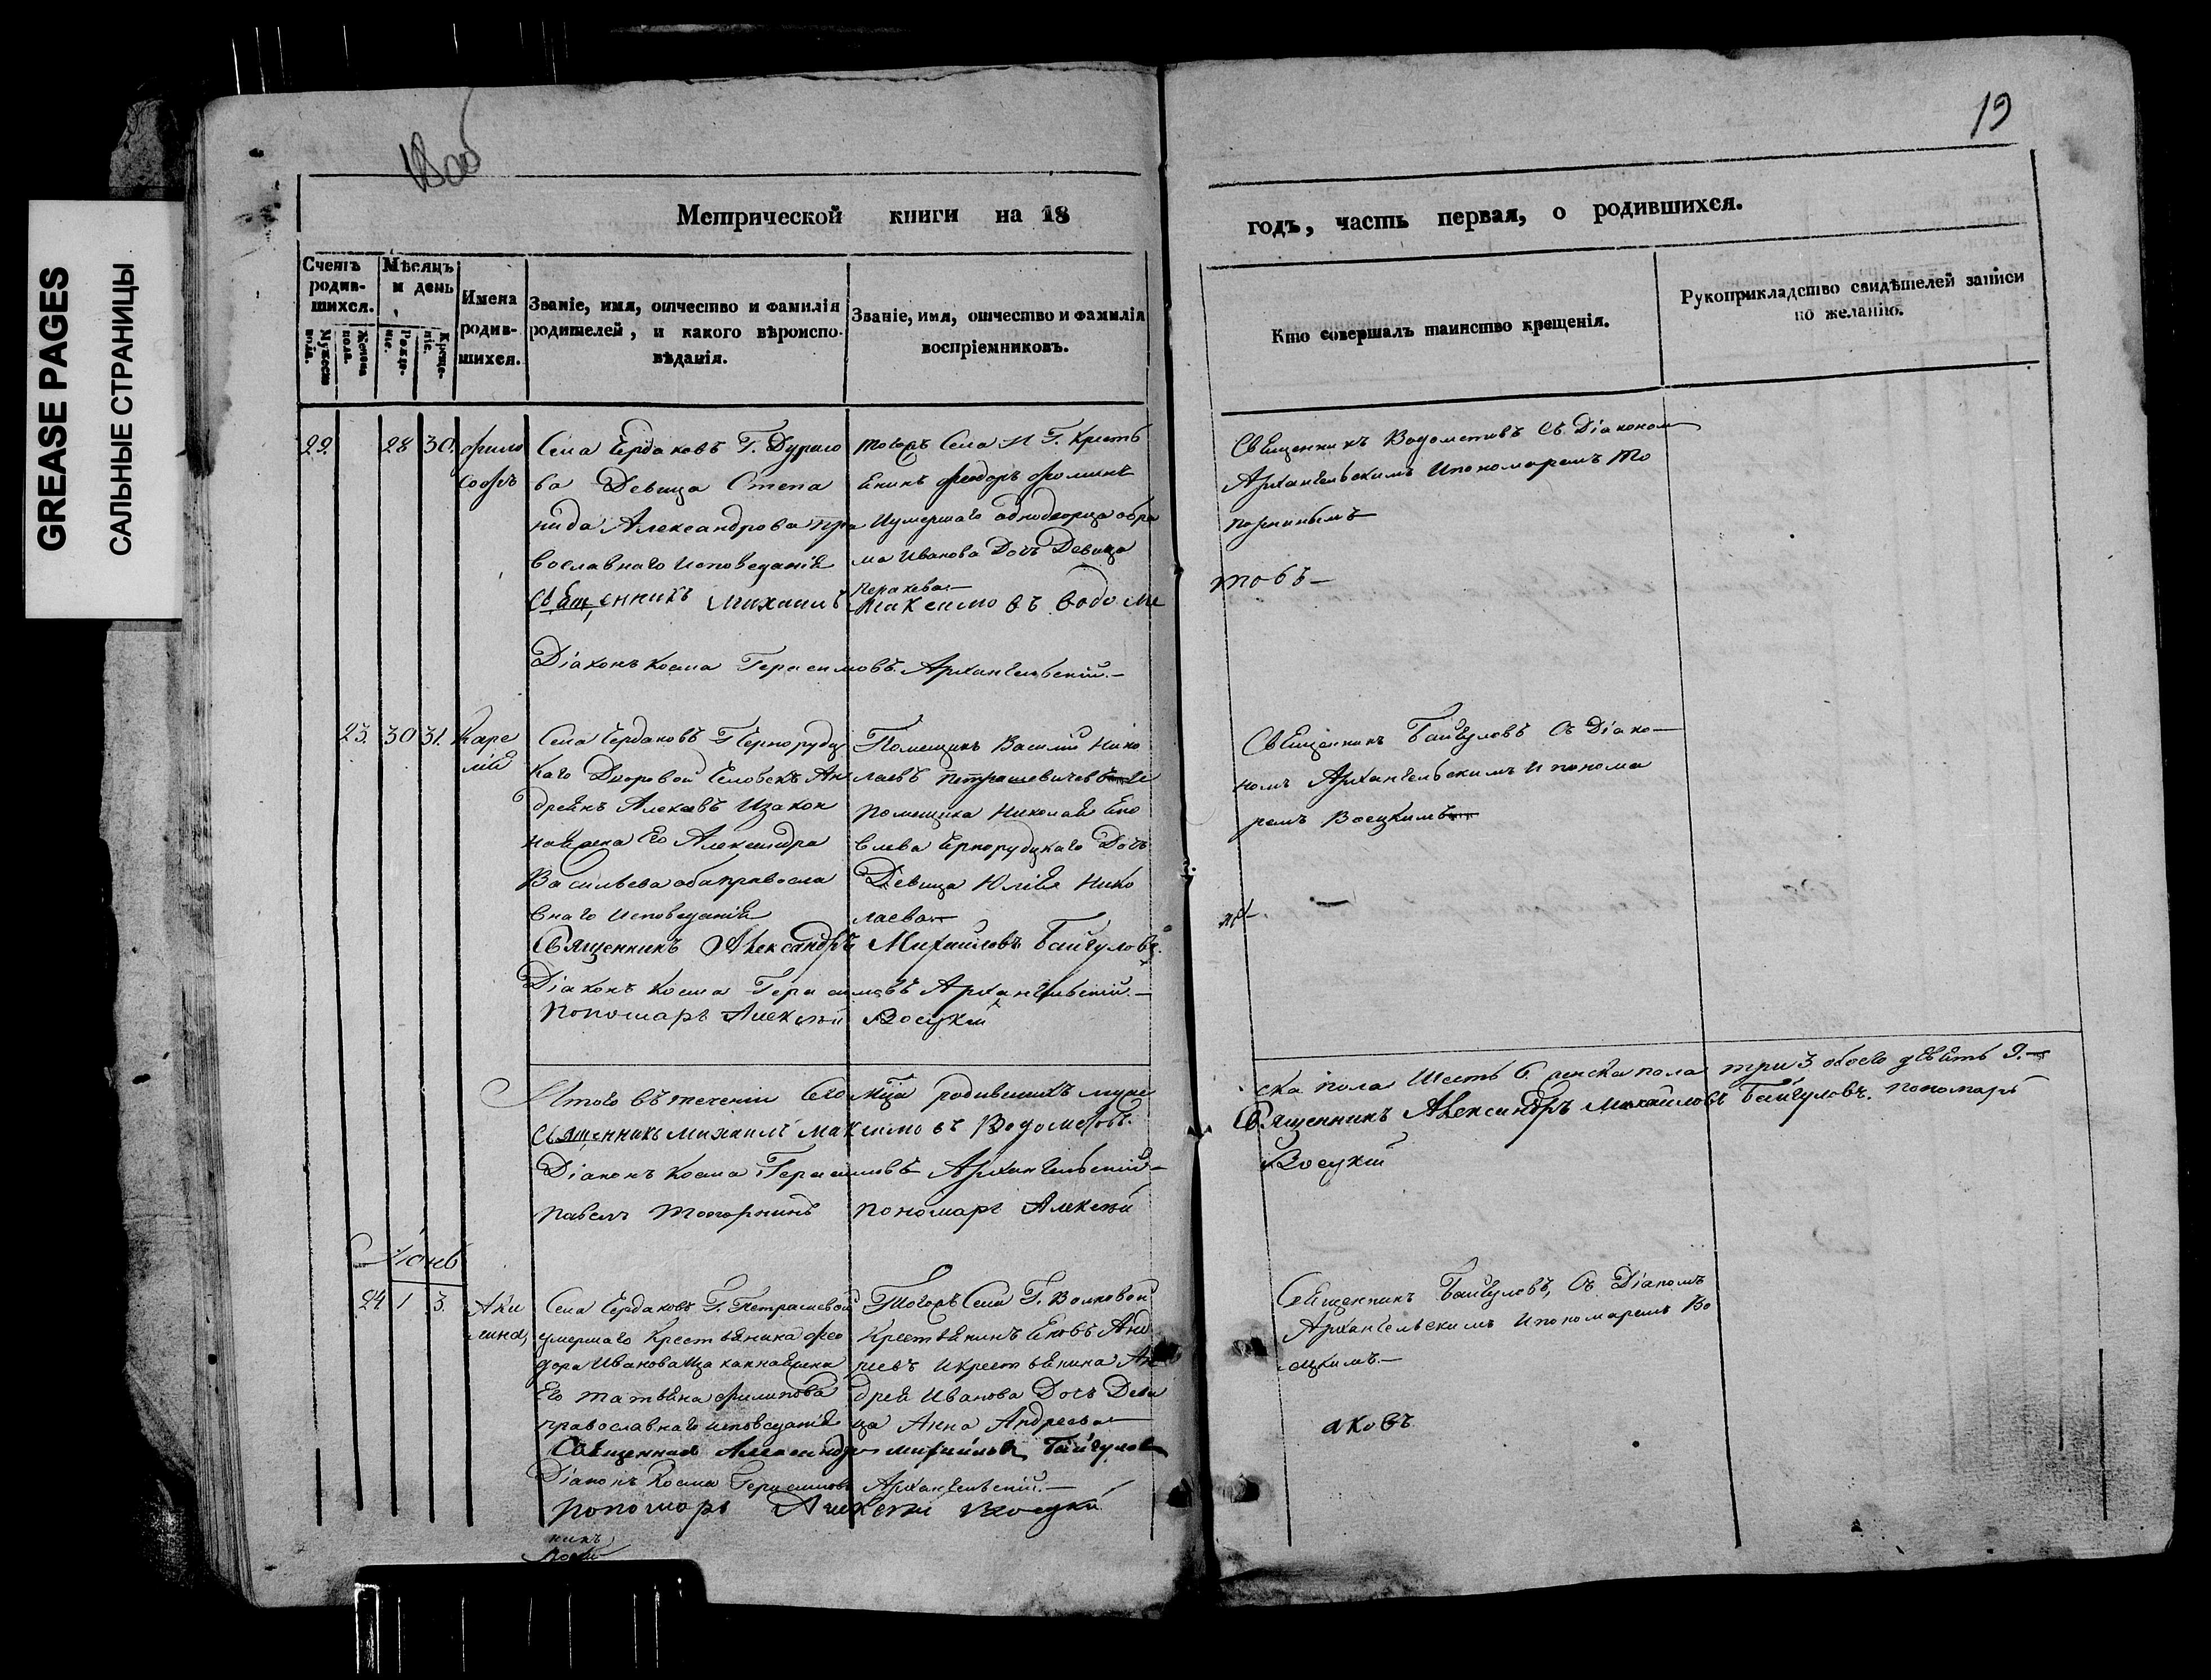 GREASE PAGES
САЛЬНЫЕ СТРАНИЦЫ
18об
19
Метрической книги на 18
годъ, часть первая, о родившихся.
Счетъ родив-шихся.
Мужеска пола.
Женска пола.
Мѣсяцъ и день
Рожде-ніе.
Креще-ніе.
Имена родив-шихся.
Званіе, имя, отчество и фамилія родителей, и какого вѣроиспо-вѣданія.
Званіе, имя, отчество и фамилія воспріемниковъ.
Кто совершалъ таинство крещенія.
Рукоприкладство свидѣтелей записи по желанію.
29. 28 30. Фило
софъ
Села Ердаковъ Г. Дурасо
ва Девица Степа
нида Александрова пра
вославнаго исповеданія
тогожъ Села и Г. Кресть
Янинъ Феодоръ Фоминъ
И умершаго однодворца Абра
ма Иванова Дочь Девица
Священникъ Водометовъ Съ Діакономъ
Архангельскимъ И пономаремъ То
порнинымъ
Священникъ Михаилъ Максимовъ Водоме
товъ
Діаконъ Косма Герасимовъ Архангельскій
23. 30 31.
Села Чердаковъ Г. Чернорудц
каго Дворовой Человекъ Ан
дреянъ Алексеевъ И закон
ная жена Его Александра
Васильева оба правосла
внаго Исповеданія
Помещикъ Василій Нико
лаевъ Петрашевичевъ и
помещика Николая Яко
влева Чернорудцкаго Дочь
Девица Юлія Нико
лаева
Священникъ Байгуловъ Съ Діако
номъ Архангельскимъ И понома
ремъ Воецкимъ
Священникъ Александръ Михайловъ Байгуловъ.
Діаконъ Косма Герасимовъ Архангельскій
Пономарь Алексѣй Воецкій
Итого въ теченіи Сего мца родившихъ муже
ска пола Шесть 6 женска пола три 3 обоего девять 9.
Священникъ Михаилъ Максимовъ Водометовъ.
Священникъ Александръ Михайловъ Байгуловъ. Пономарь
Діаконъ Косма Герасимовъ Архангельскій
Воецкій
Павелъ Топорнинъ Пономарь Алексѣй
Июнь
24 1 3. Аки
лина,
Села Чердаковъ Г. Петрашевой
умершаго Крестьянина Фео
дора Иванова Законная жена
Его Татьяна Филипова
православнаго исповеданія
Тогожъ Села Г. Волковой
Крестьянинъ Яковъ Анд
реевъ и крестьянина Ан
дрея Иванова Дочь Деви
ца Анна Андреева
Священникъ Байгуловъ, Съ Діакономъ
Архангельскимъ И пономаремъ Во
ецкимъ.
Священникъ Александръ Михайловъ Байгуловъ
Діаконъ Косма Герасимовъ Архангельскій.
Пономарь Алексѣй Воецкій